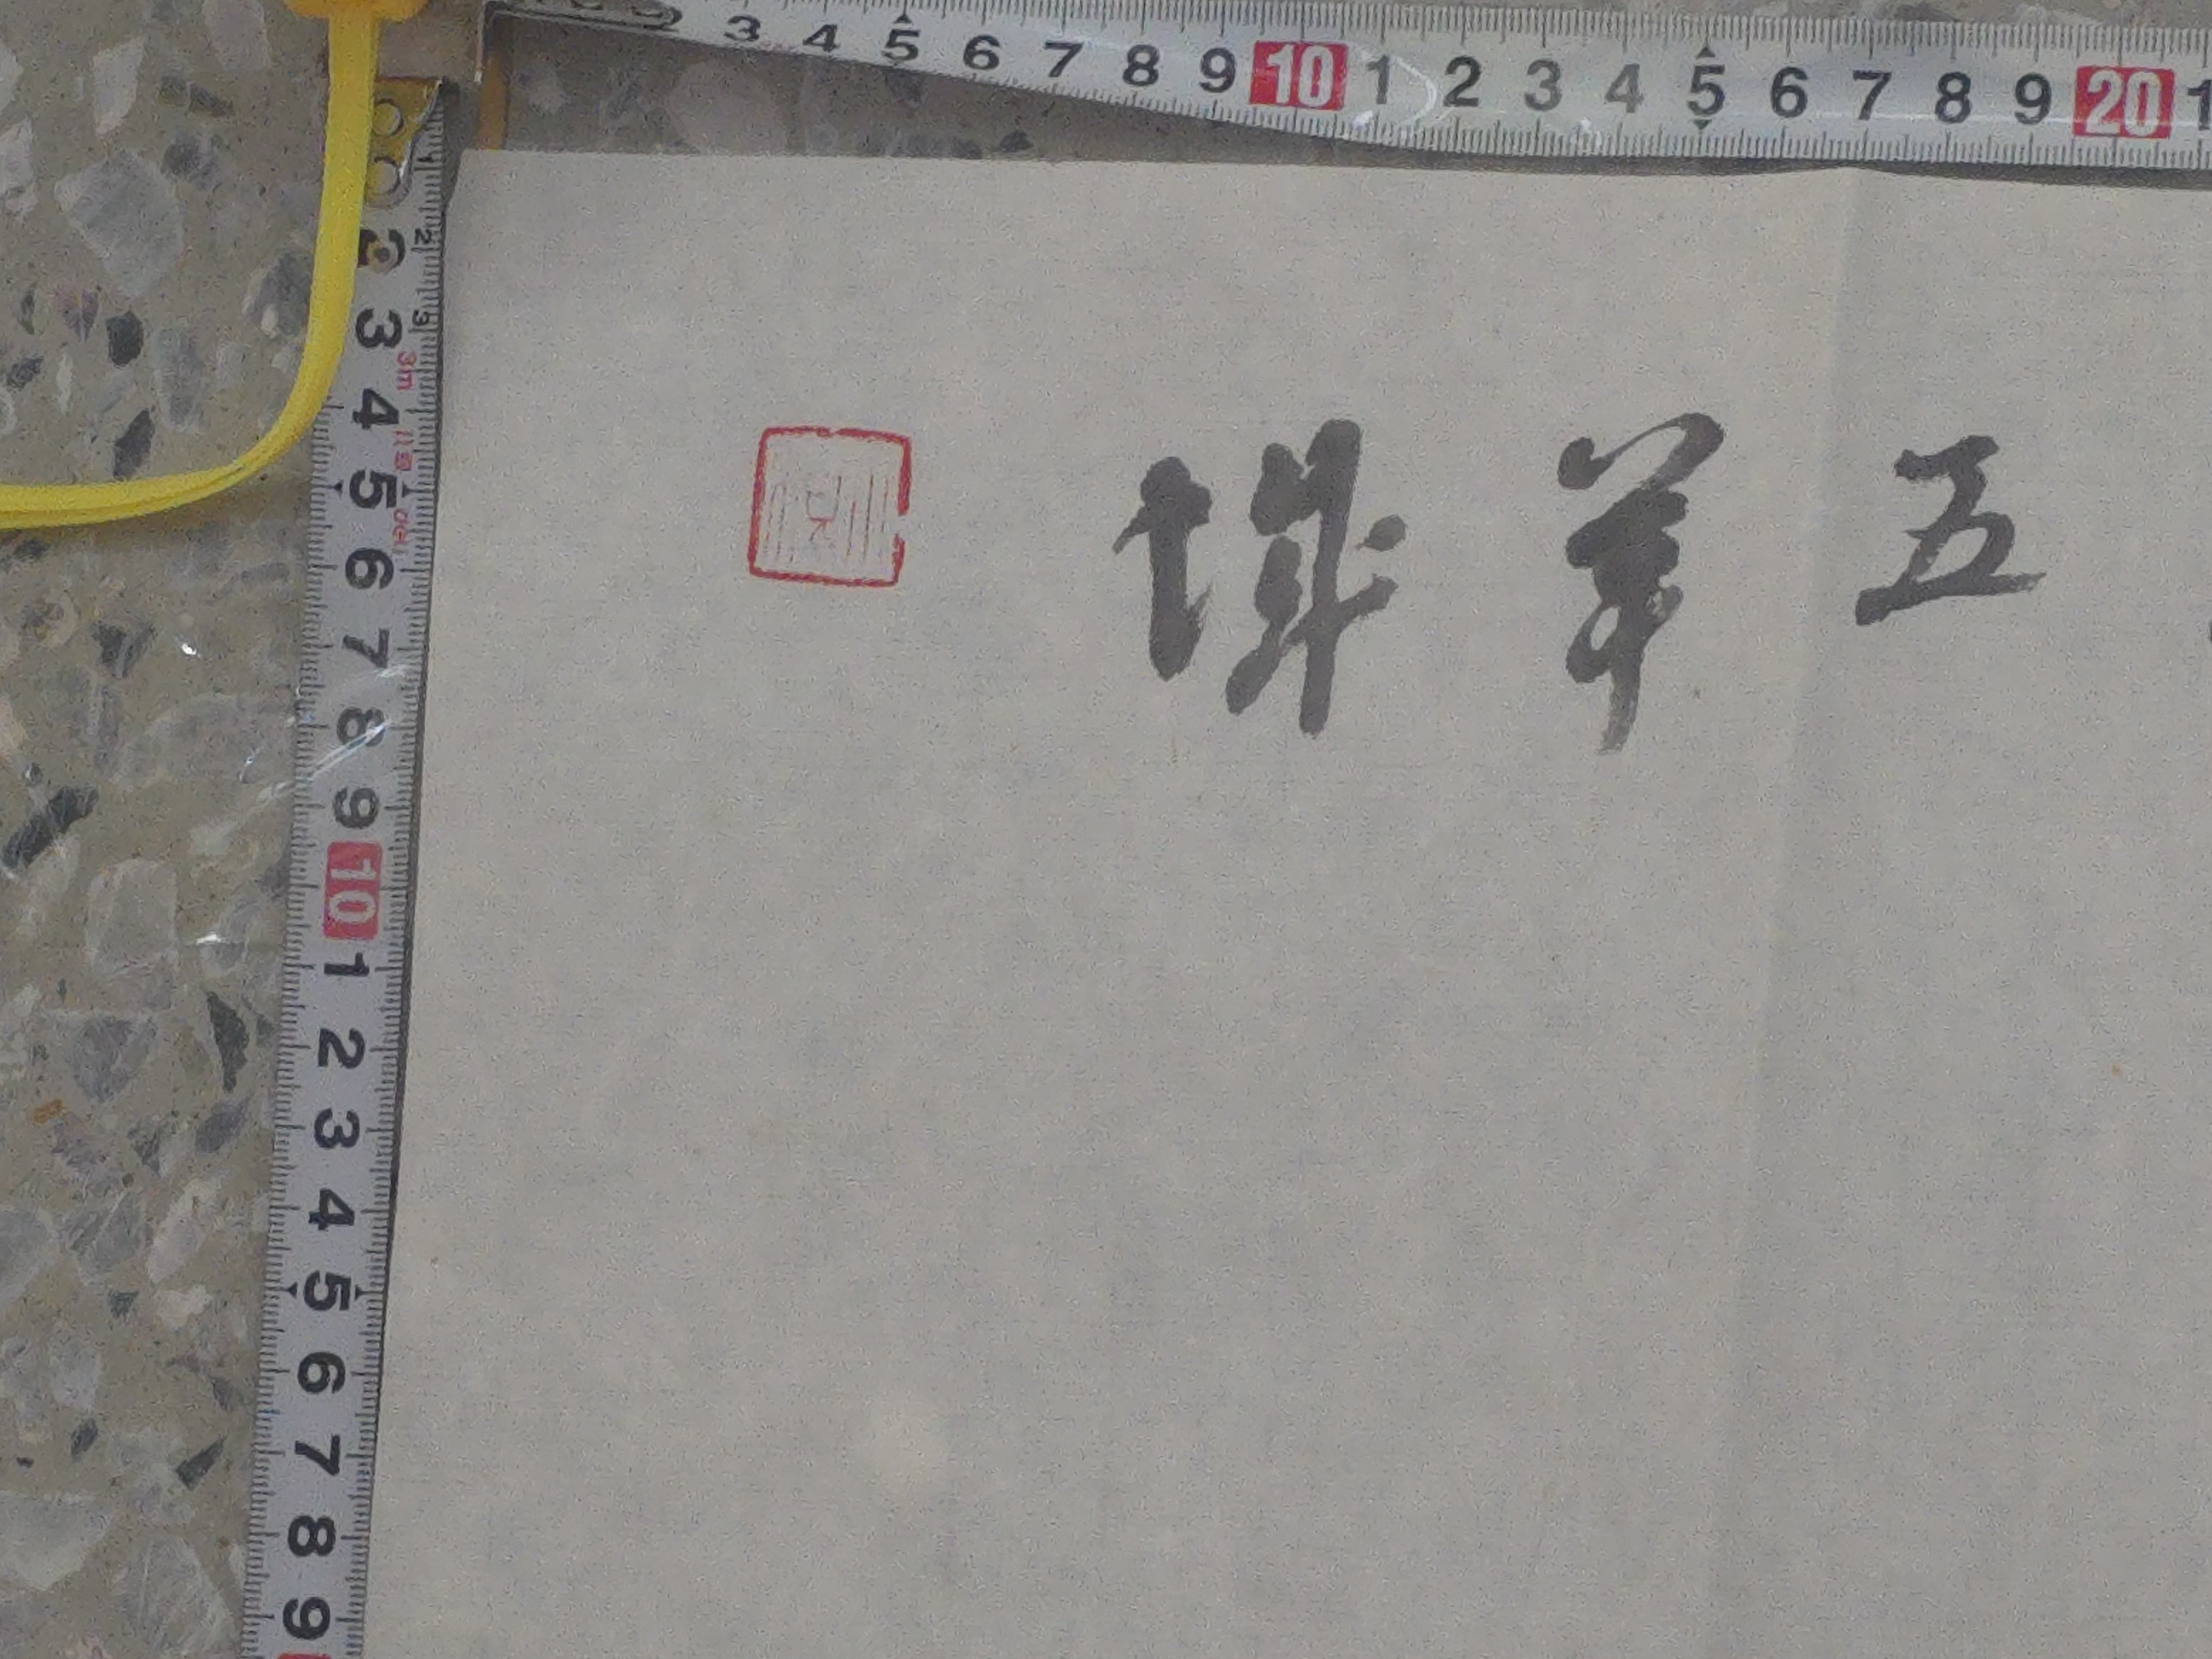 2 3 4 5 6 7 8 9 10 1 2 3 4 5 6 7 8 9 20 1
五羊城
2 3 4 5 6 7 8 9 10 1 2 3 4 5 6 7 8 9
2 3
3m
deli